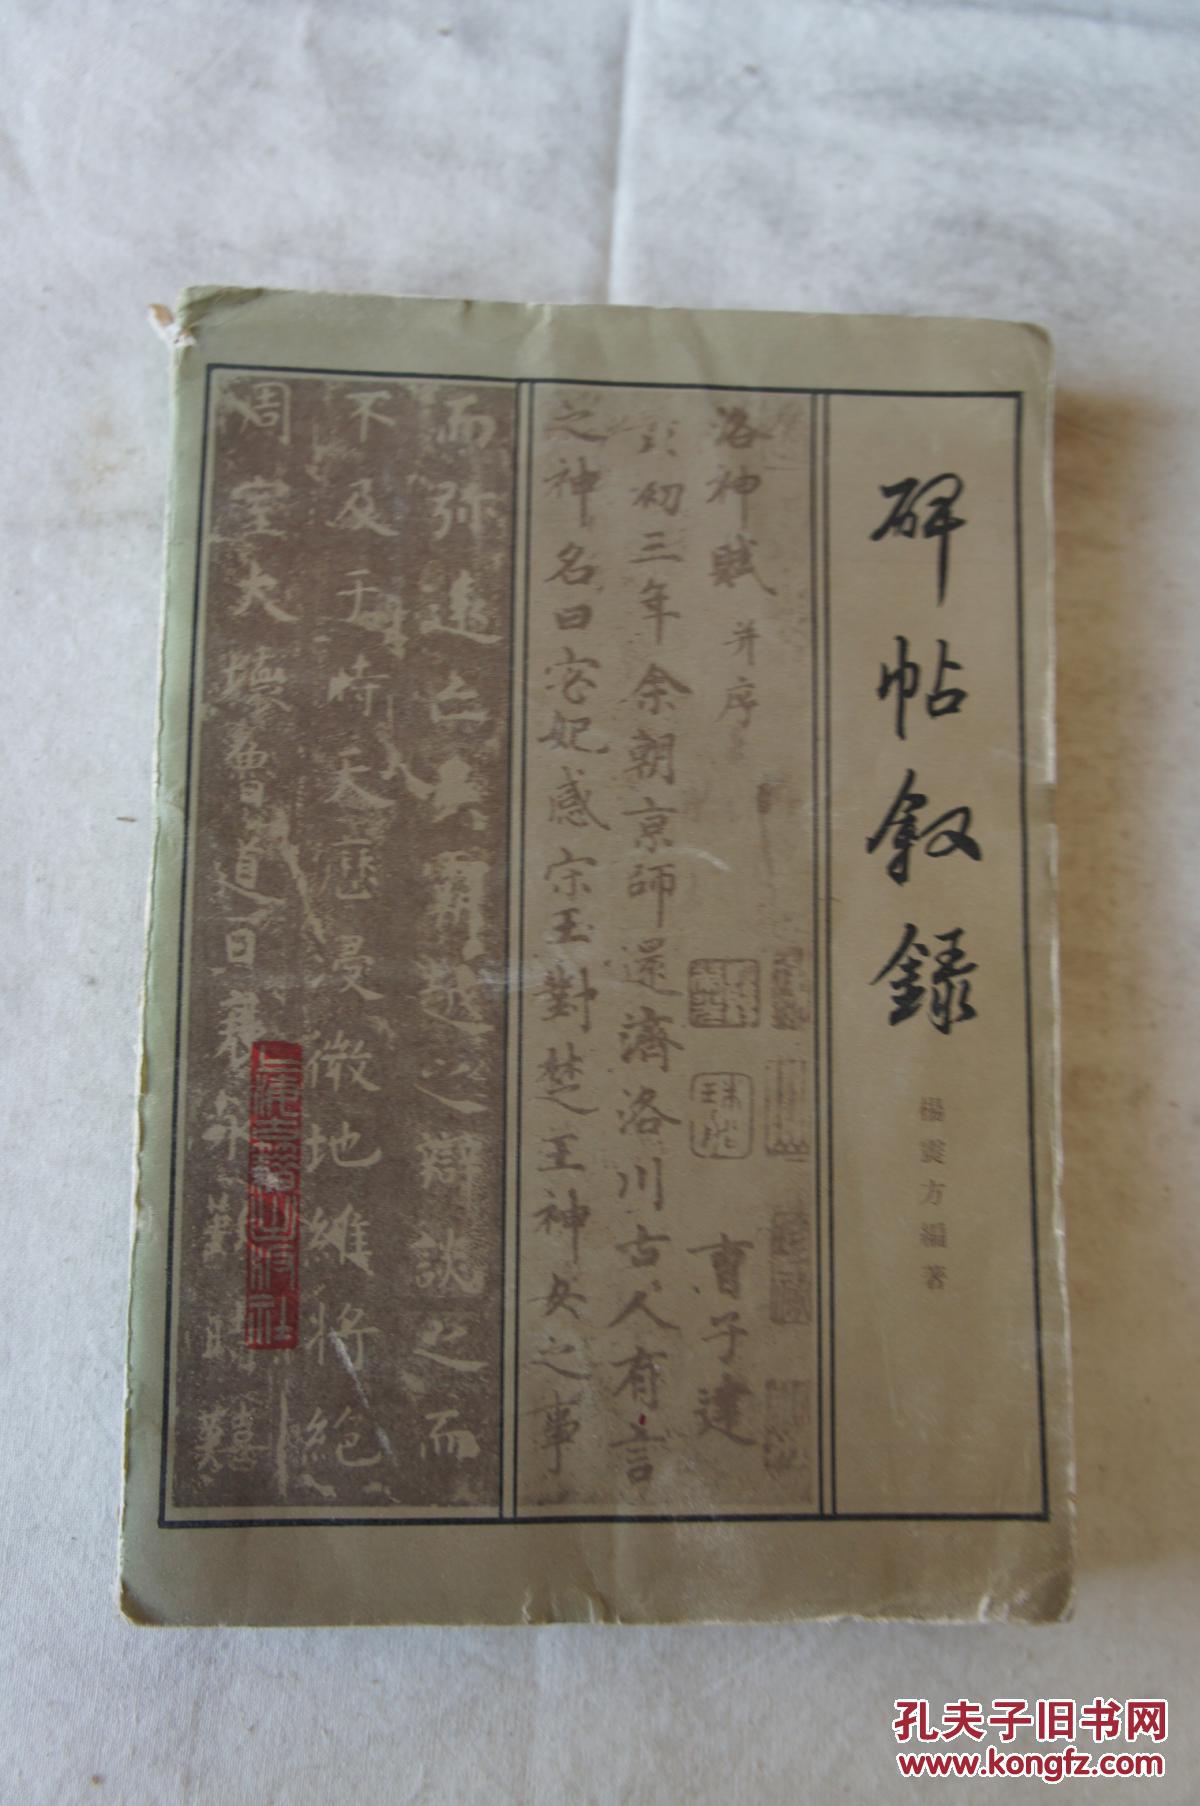 碑帖叙録
楊震方編著
洛神賦 并序 曹子建
黄初三年余朝京師還濟洛川古人有言
之神名曰宓妃感宋玉對楚王神女之事
而弥遠亡
越之辯談之而
不及于時天歷寖微地維將絶
周室大壞魯道日衰
上海古籍出版社
孔夫子旧书网
www.kongfz.com